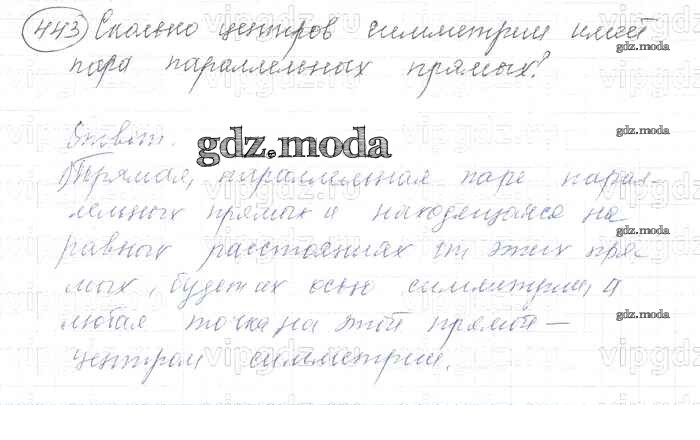 443 Сколько центров симметрии имеет
пара параллельных прямых?
Ответ.
gdz.moda
1) Прямая, параллельная паре парал-
лельных прямых и находящаяся на
равных расстояниях от этих пря-
мых, будет их осью симметрии, а
любая точка на этой прямой –
центром симметрии.
gdz.moda
gdz.moda
gdz.moda
gdz.moda
gdz.moda